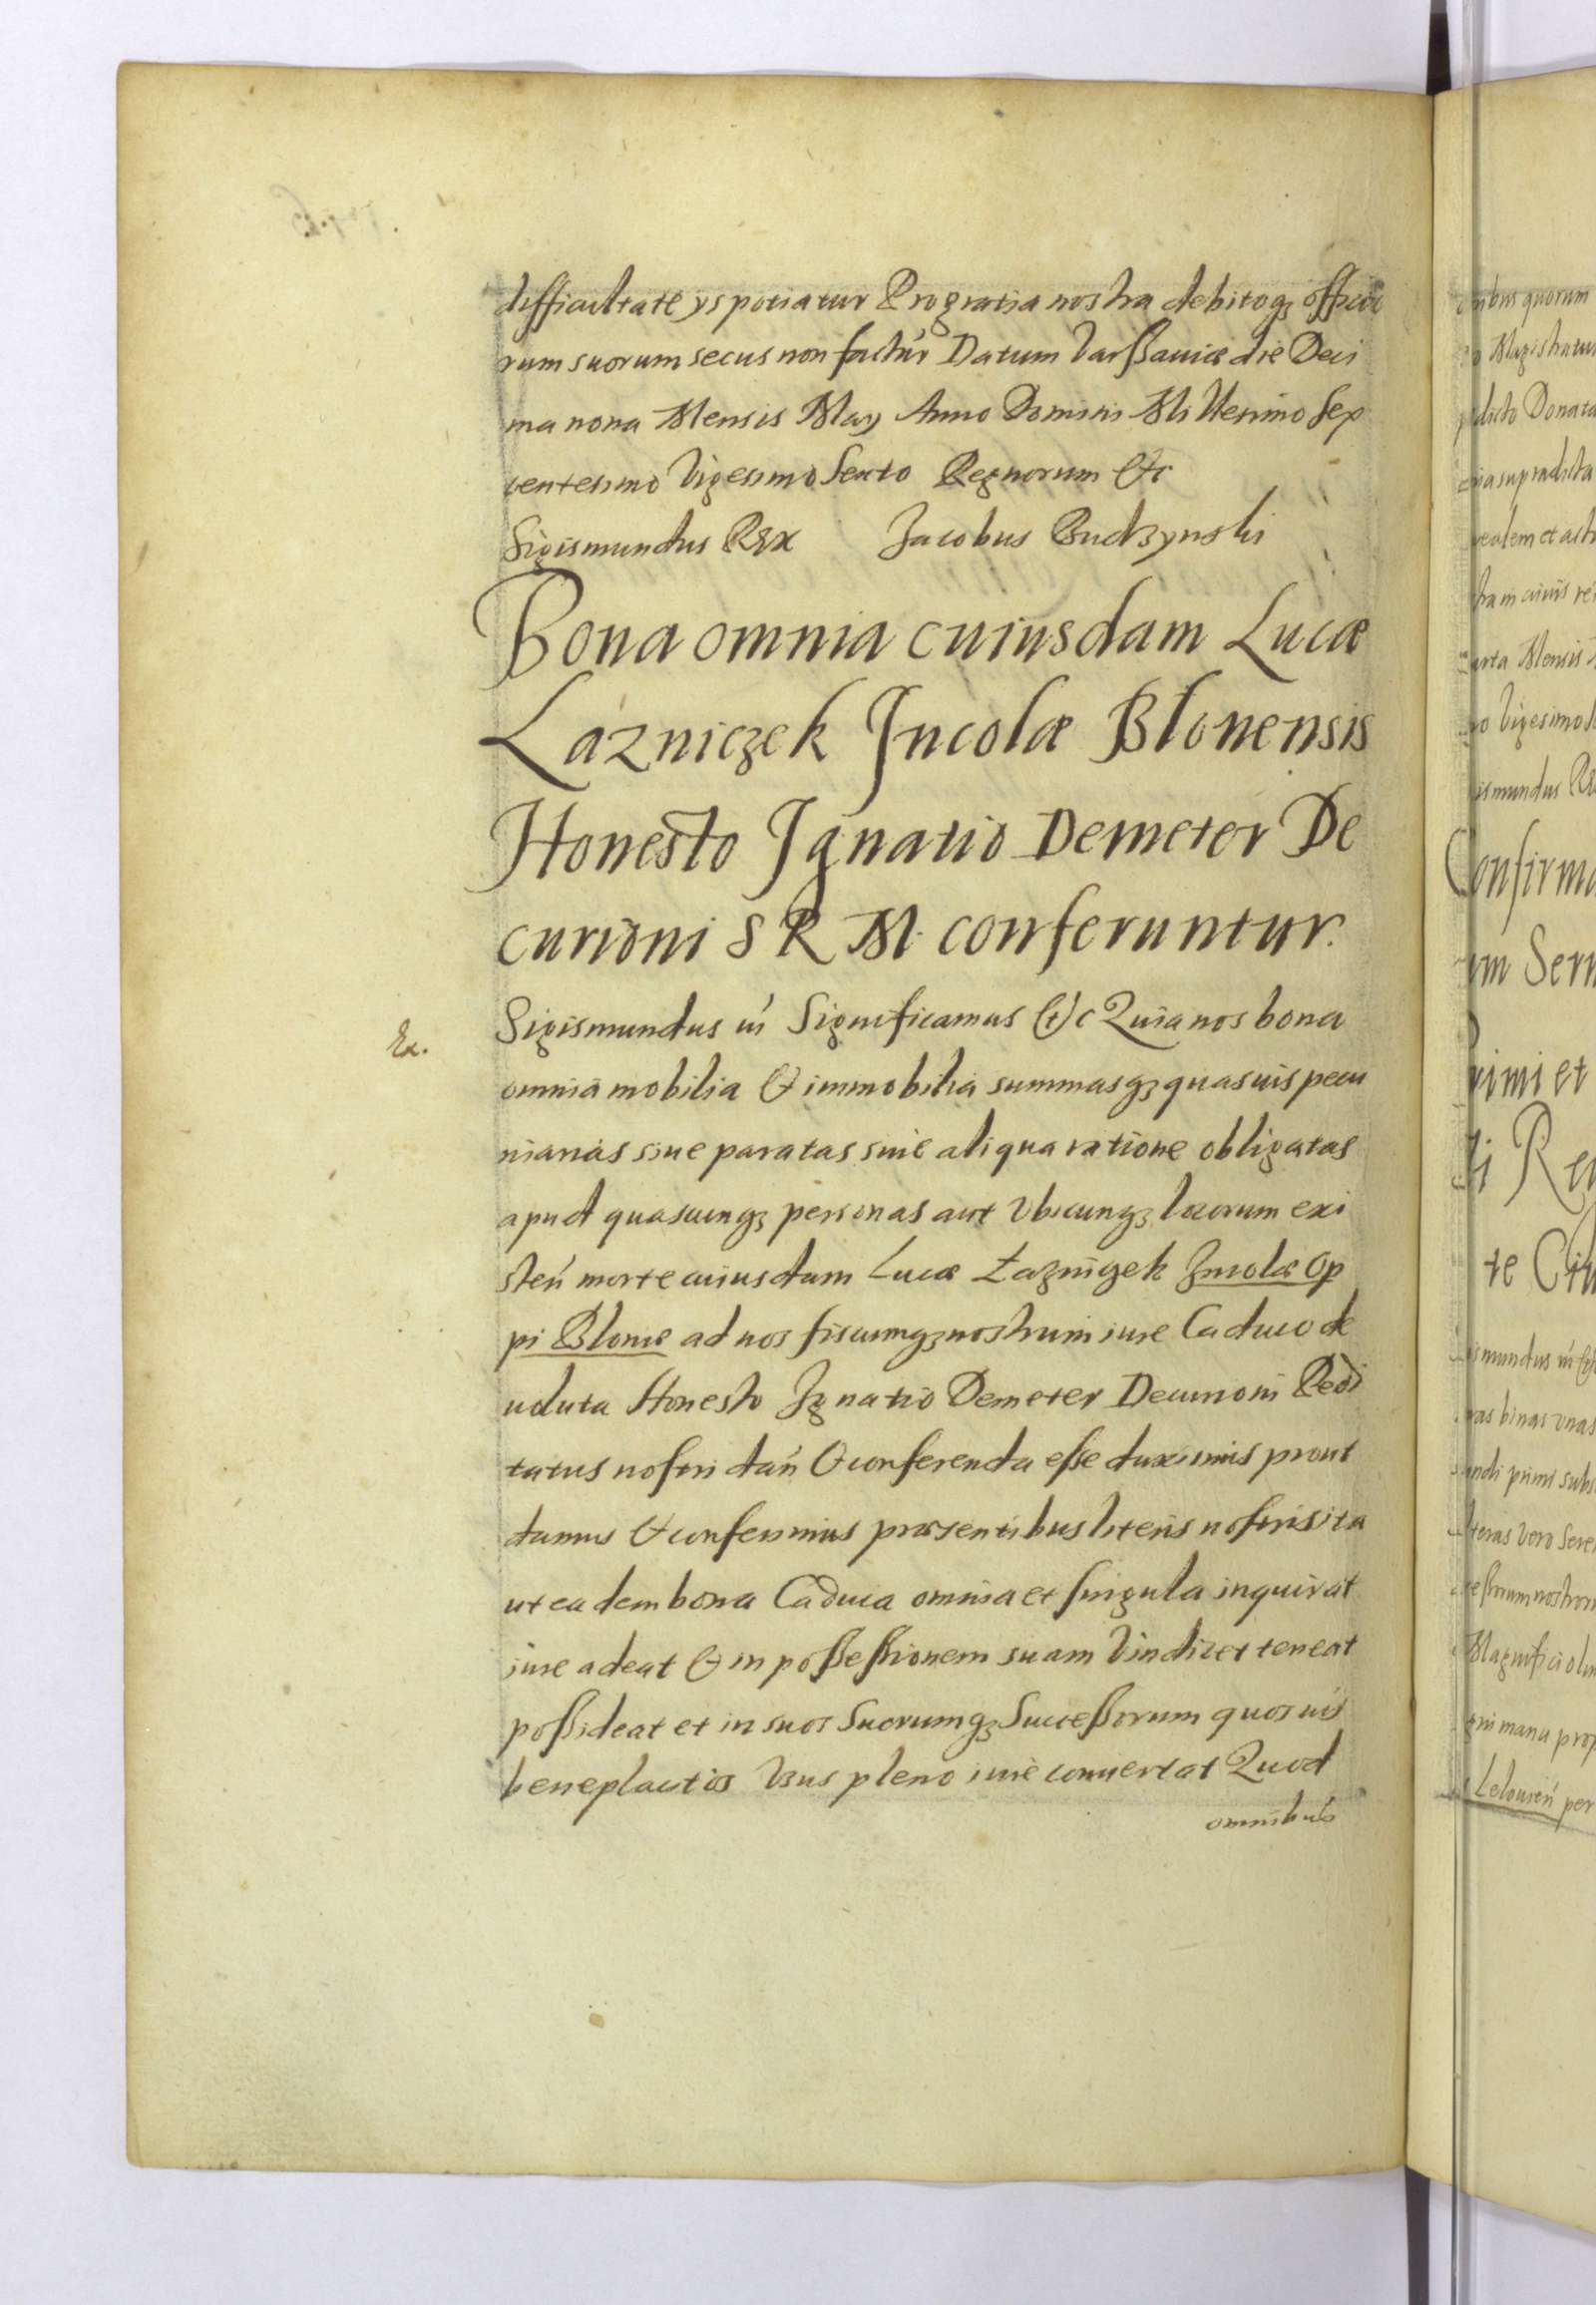 difficultate ys potiatur Pro gratia nostra debitoqꝫ officio
rum suorum secus non factúr Datum Varßauiæ die Deci
ma nona Mensis May Anno Domini Millesimo Sex
centesimo Vigesimo Sexto Regnorum &c
Sigismundus Rex Jacobus Budzynski
Bona omnia cuiusdam Lucæ
Lazniczek Incolæ Blonensis
Honesto Ignatio Demeter De
curioni S R M. conferuntur.
Ex.
Sigismundus ui Significamus &c Quia nos bona
omnia mobilia & immobilia summasqꝫ quasuis pecu
niarias siue paratas siue aliqua ratione obligatas
apud quascunqꝫ personas aut Vbicunqꝫ locorum exi
steń morte cuiusdam Lucæ Łazniczek Incolæ Op
pi Bloniæ ad nos fiscumqꝫ nostrum iure Caduco de
uoluta Honesto Ignatio Demeter Decurioni Pedi
tatus nostri dań & conferenda esse duximus prout
damus & conferimus præsentibus literis nostris ita
ut ea dem bona Caduca omnia et singula inquirat
iure adeat & in poßeßionem suam Vindicet teneat
poßideat et in suos Suorumqꝫ Succeßorum quosuis
beneplacitos Vsus pleno iure conuertat Quod
omnibus